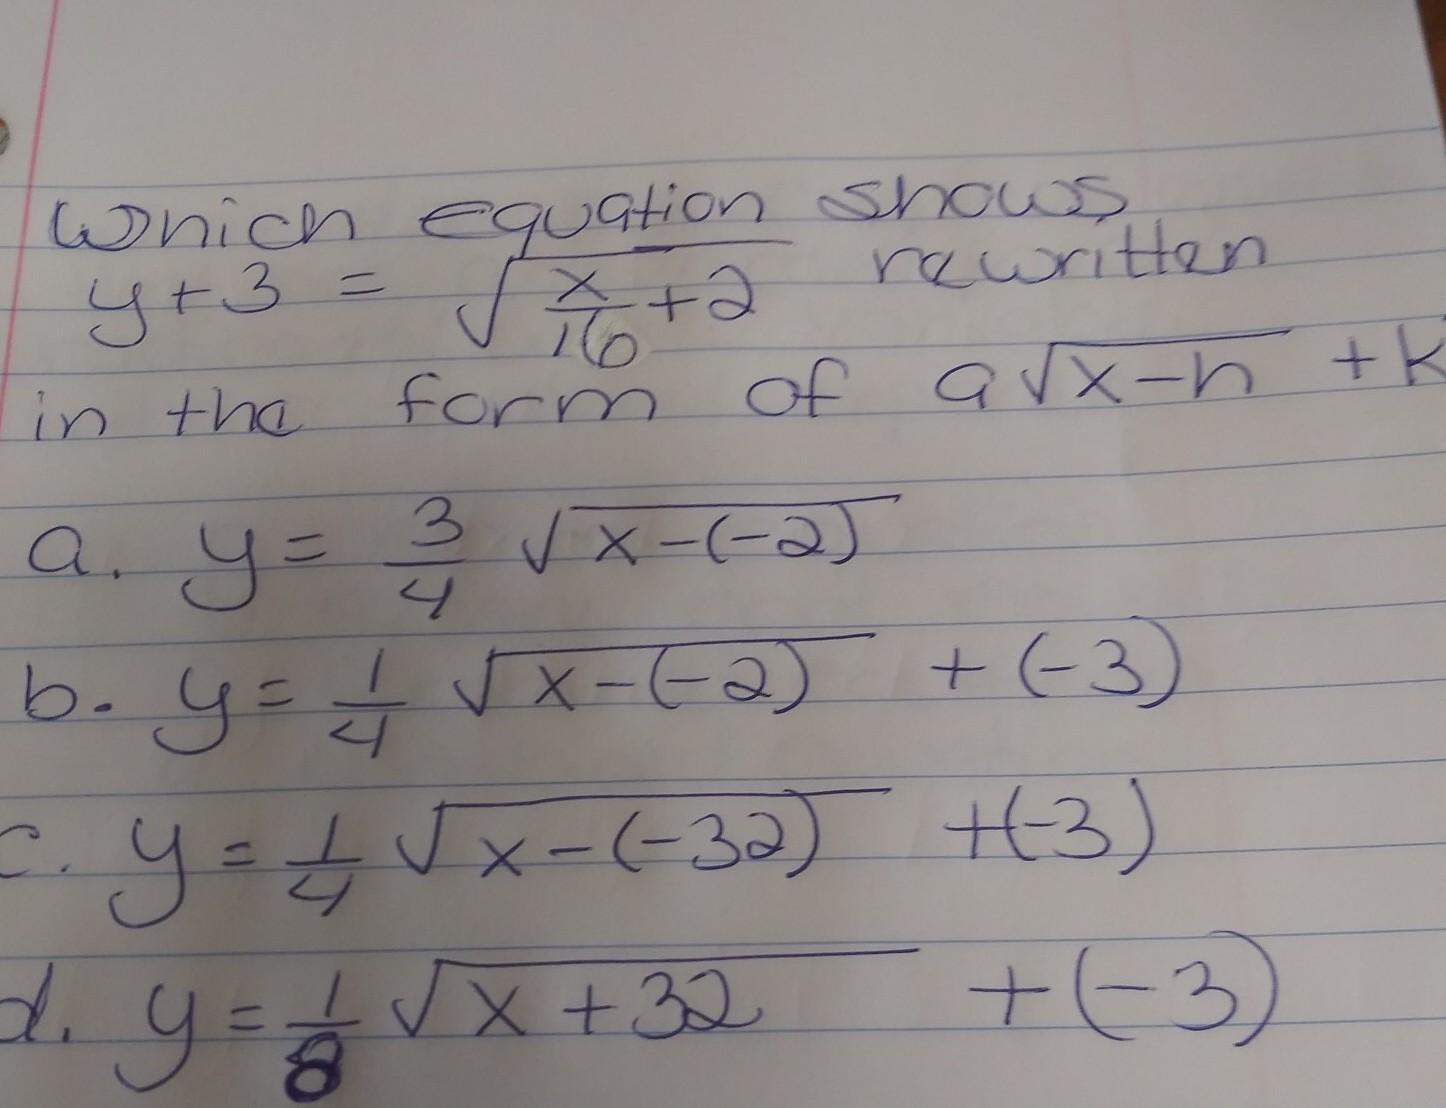 Which equation shows
y+3 = √(x/16 + 2) rewritten
in the form of a√(x-h) + k
a. y = 3/4 √(x-(-2))
b. y = 1/4 √(x-(-2)) + (-3)
c. y = 1/4 √(x-(-32)) +(-3)
d. y = 1/8 √(x+32) + (-3)